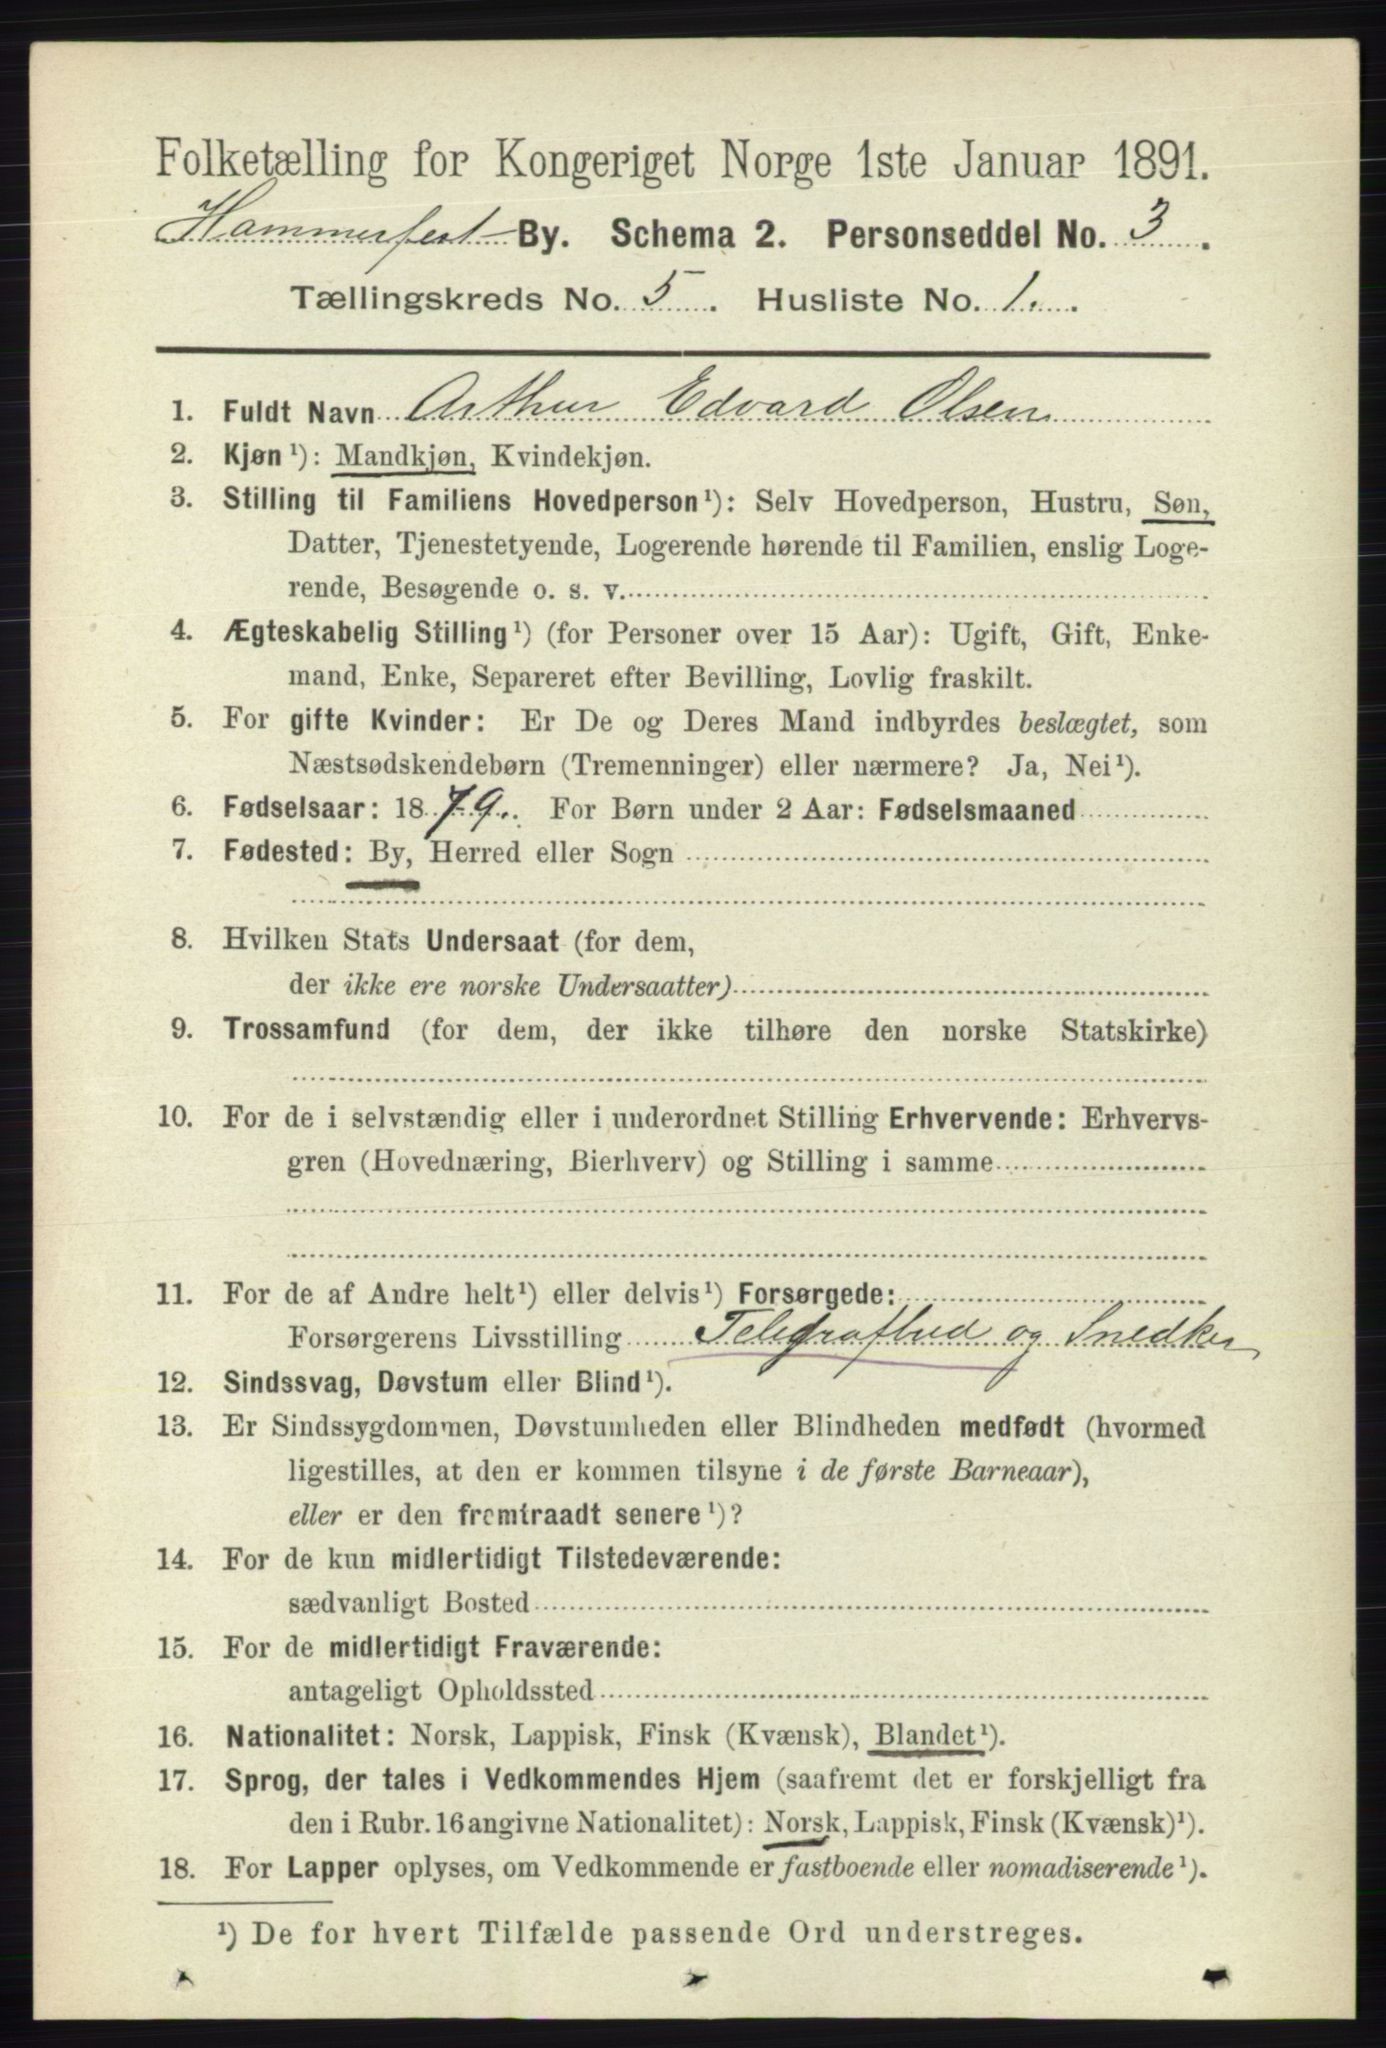 Folketælling for Kongeriget Norge 1ste Januar 1891.
Hammerfest By. Schema 2. Personseddel No. 3.
Tællingskreds No. 5. Husliste No. 1.
1. Fuldt Navn Arthur Edvard Olsen
2. Kjøn¹): Mandkjøn, Kvindekjøn.
3. Stilling til Familiens Hovedperson¹): Selv Hovedperson, Hustru, Søn,
Datter, Tjenestetyende, Logerende hørende til Familien, enslig Loge-
rende, Besøgende o. s. v.
4. Ægteskabelig Stilling¹) (for Personer over 15 Aar): Ugift, Gift, Enke-
mand, Enke, Separeret efter Bevilling, Lovlig fraskilt.
5. For gifte Kvinder: Er De og Deres Mand indbyrdes beslægtet, som
Næstsødskendebørn (Tremenninger) eller nærmere? Ja, Nei¹).
6. Fødselsaar: 1879. For Børn under 2 Aar: Fødselsmaaned
7. Fødested: By, Herred eller Sogn
8. Hvilken Stats Undersaat (for dem,
der ikke ere norske Undersaatter)
9. Trossamfund (for dem, der ikke tilhøre den norske Statskirke)
10. For de i selvstændig eller i underordnet Stilling Erhvervende: Erhvervs-
gren (Hovednæring, Bierhverv) og Stilling i samme
11. For de af Andre helt¹) eller delvis¹) Forsørgede:
Forsørgerens Livsstilling Telegrafbud og Snedker
12. Sindssvag, Døvstum eller Blind¹).
13. Er Sindssygdommen, Døvstumheden eller Blindheden medfødt (hvormed
ligestilles, at den er kommen tilsyne i de første Barneaar),
eller er den fremtraadt senere¹)?
14. For de kun midlertidigt Tilstedeværende:
sædvanligt Bosted
15. For de midlertidigt Fraværende:
antageligt Opholdssted
16. Nationalitet: Norsk, Lappisk, Finsk (Kvænsk), Blandet¹).
17. Sprog, der tales i Vedkommendes Hjem (saafremt det er forskjelligt fra
den i Rubr. 16 angivne Nationalitet): Norsk, Lappisk, Finsk (Kvænsk)¹).
18. For Lapper oplyses, om Vedkommende er fastboende eller nomadiserende¹).
¹) De for hvert Tilfælde passende Ord understreges.